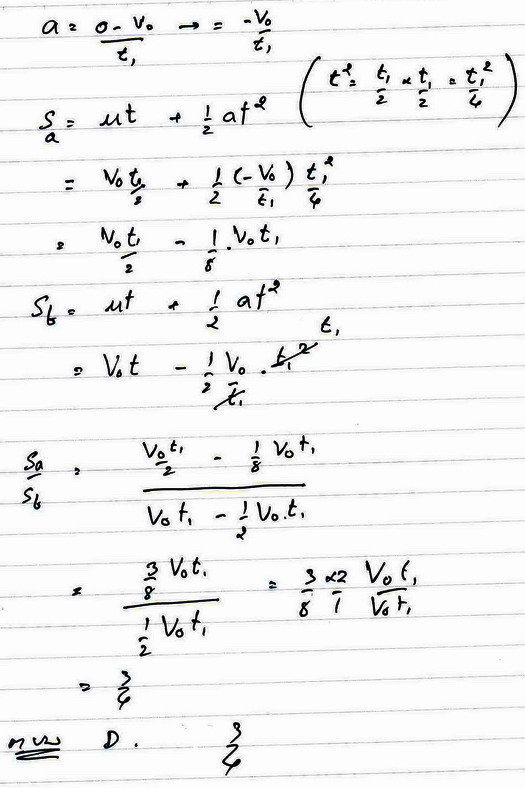 a = (0 - V₀)/t₁ → = -V₀/t₁
(t² = t₁/2 × t₁/2 = t₁²/4)
Sa = ut + 1/2 at²
= V₀ t₁/2 + 1/2 (-V₀/t₁) t₁²/4
= V₀t₁/2 - 1/8 . V₀t₁
Sb = ut + 1/2 at²
= V₀t - 1/2 V₀/t₁ . t₁² t₁
Sa/Sb = (V₀t₁/2 - 1/8 V₀t₁)/(V₀t₁ - 1/2 V₀.t₁)
= (3/8 V₀t₁)/(1/2 V₀t₁) = 3/8 × 2/1 V₀t₁/V₀t₁
= 3/4
D. 3/4